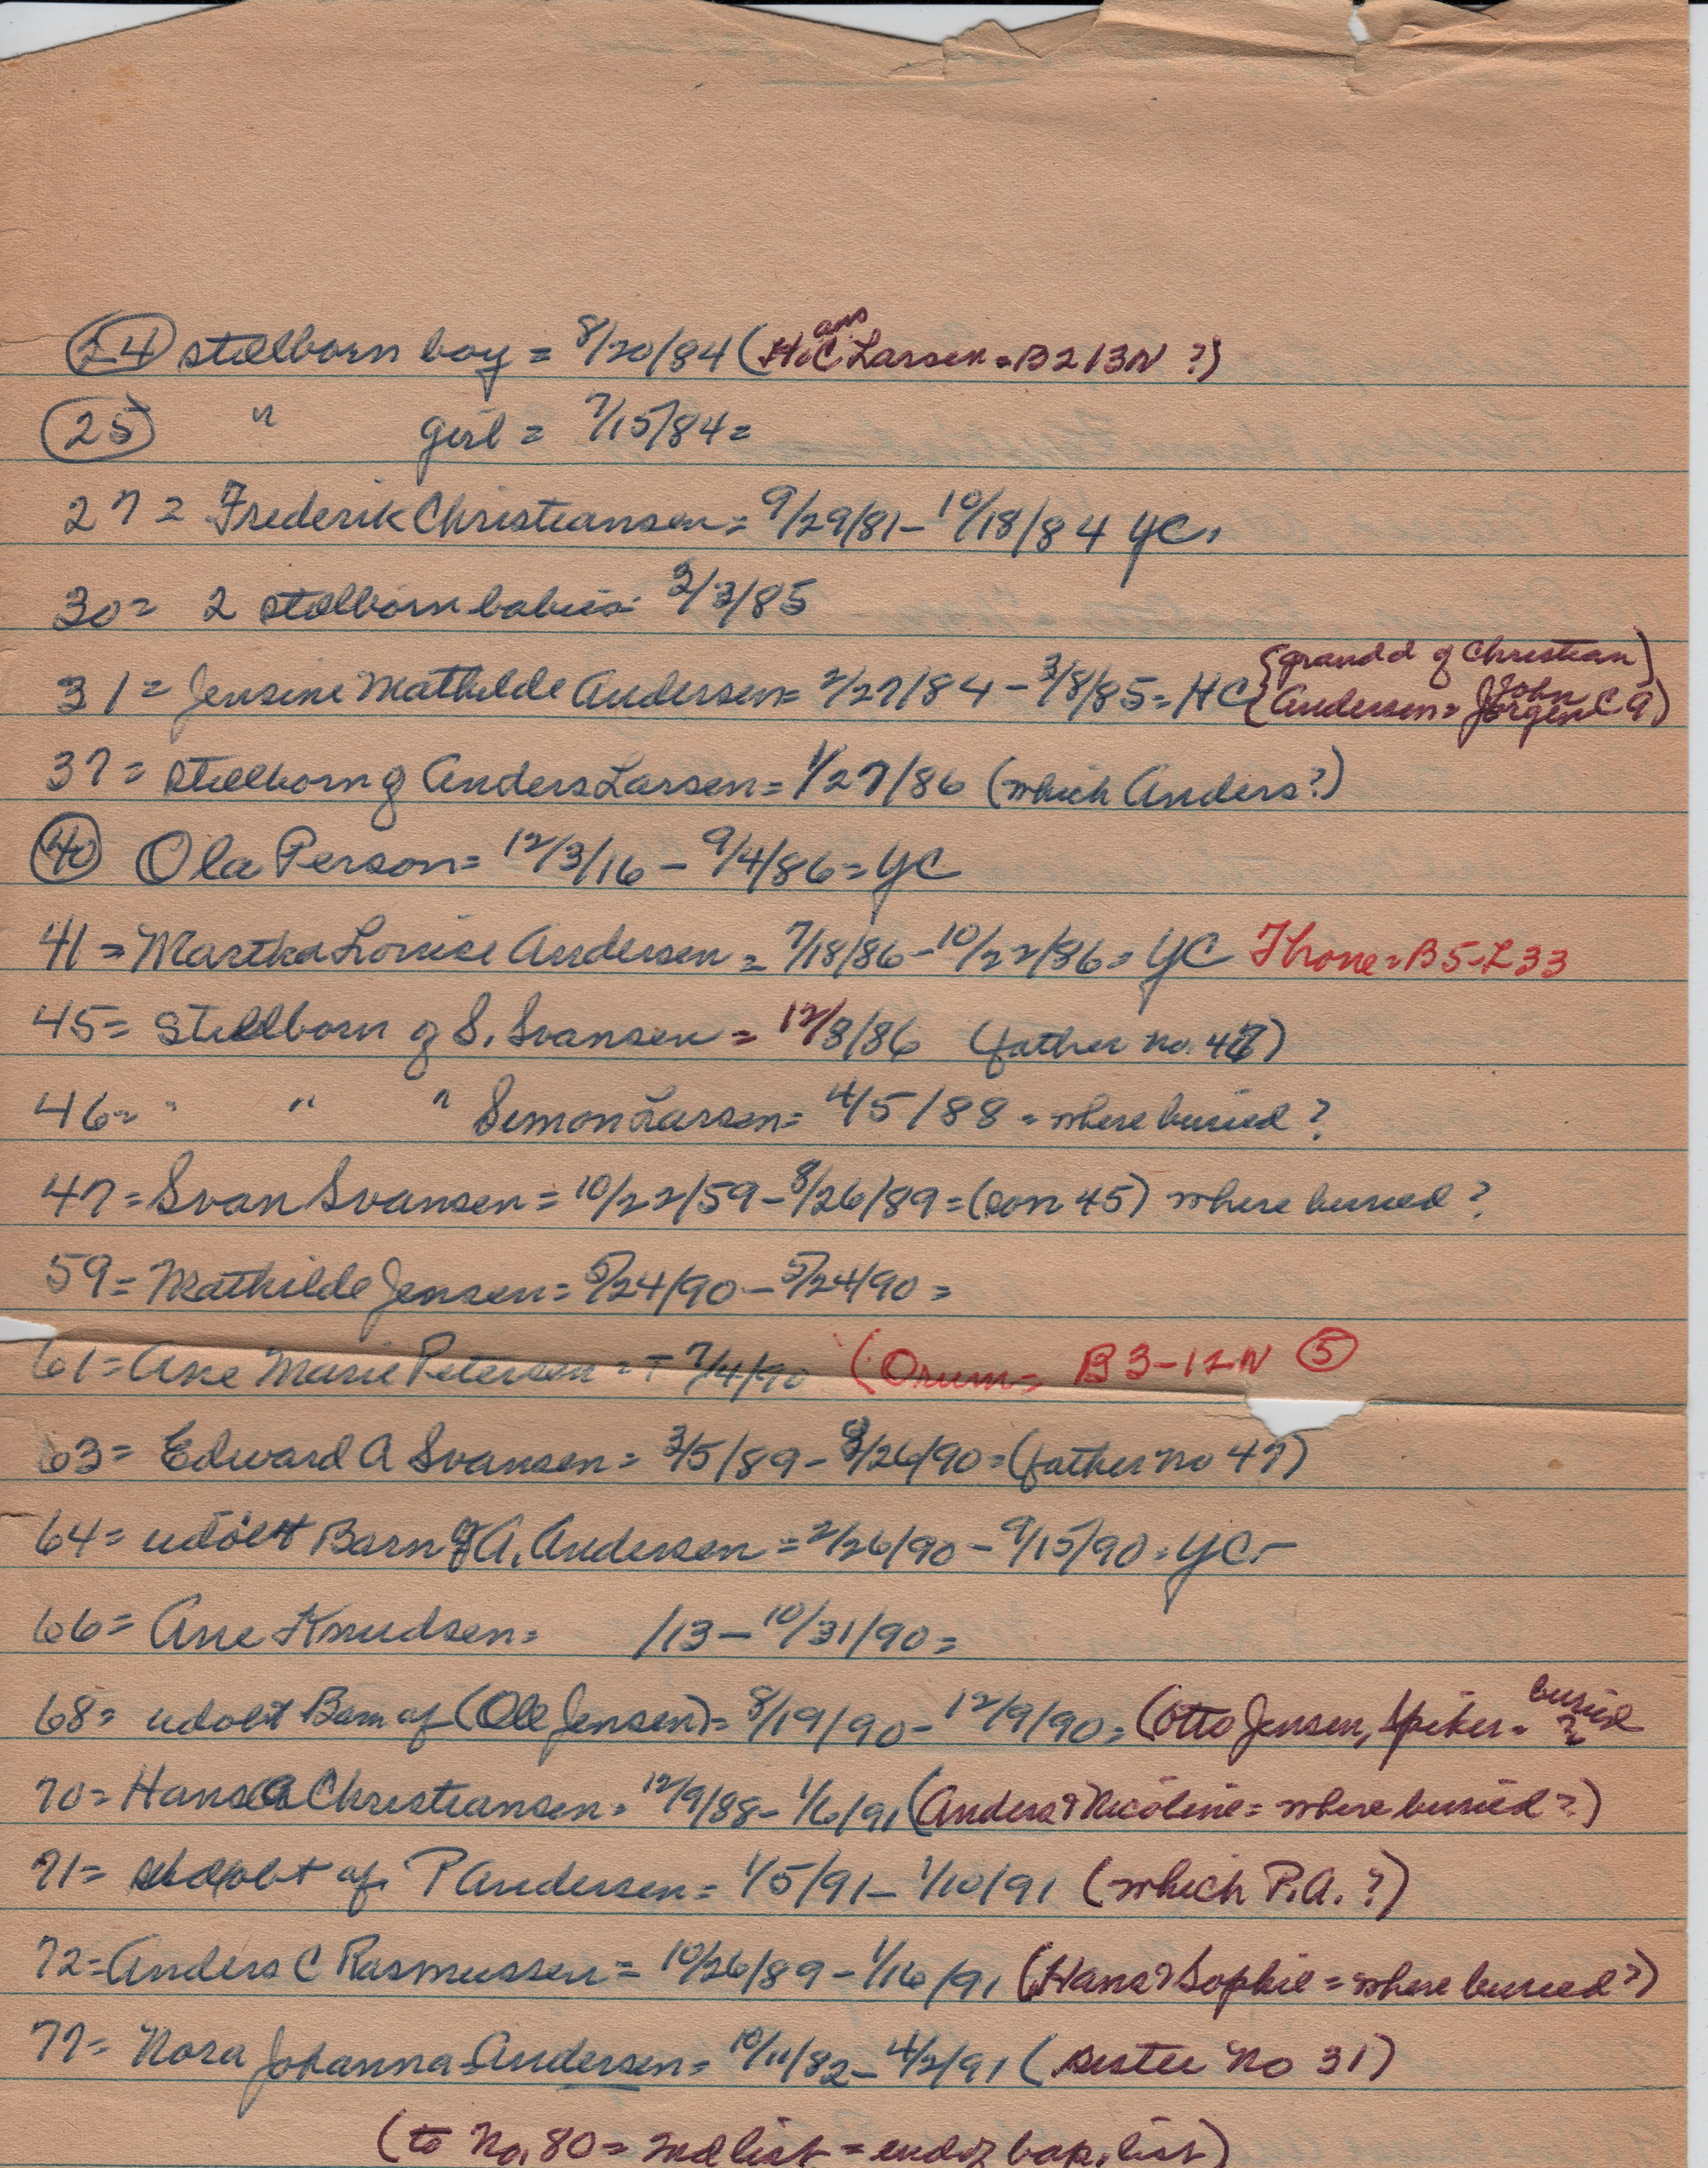 24 stillborn boy = 8/20/84 (Hans C Larsen = B2 13N ?)
25 " girl = 7/15/84 =
27 = Frederik Christiansen = 9/29/81 - 10/18/84 YC.
30 = 2 stillborn babies = 3/3/85
31 = Jensine Mathilde Andersen = 2/27/84 - 3/8/85 = HC {grandd of Christian}
{Andersen = John Jorgen C A)
37 = stillborn of Anders Larsen = 1/27/86 (which Anders?)
40 Ola Person = 12/3/16 - 9/4/86 = YC
41 = Martha Louise Andersen = 7/18/86 - 10/22/86 = YC Throne = B5-L33
45 = Stillborn of S. Svansen = 12/8/86 (father no. 47)
46 = " " " Simon Larsen = 4/5/88 = where buried?
47 = Svan Svansen = 10/22/59 - 8/26/89 = (son 45) where buried?
59 = Mathilde Jensen = 5/24/90 - 5/24/90 =
61 = Ane Marie Petersen = - 7/4/90 (Orum = B3-12N 5
63 = Edward A Svansen = 3/5/89 - 8/26/90 = (father no 47)
64 = udöbt Barn of A. Andersen = 2/26/90 - 9/15/90 = YC -
66 = Ane Knudsen = /13 - 10/31/90 =
68 = udobt Barn af (Ole Jensen) = 8/19/90 - 12/9/90 = (Otto Jensen, Spiker = buried ?
70 = Hans Christiansen = 12/9/88 - 1/6/91 (Anders & Nicoline = where buried?)
71 = udobt af P Andersen = 1/5/91 - 1/10/91 (which P.A. ?)
72 = Anders C Rasmussen = 10/26/89 - 1/16/91 (Hans & Sophie = where buried?)
77 = Nora Johanna Andersen = 10/11/82 - 4/2/91 (sister No 31)
(to No. 80 = 2nd list = end of bap. list)